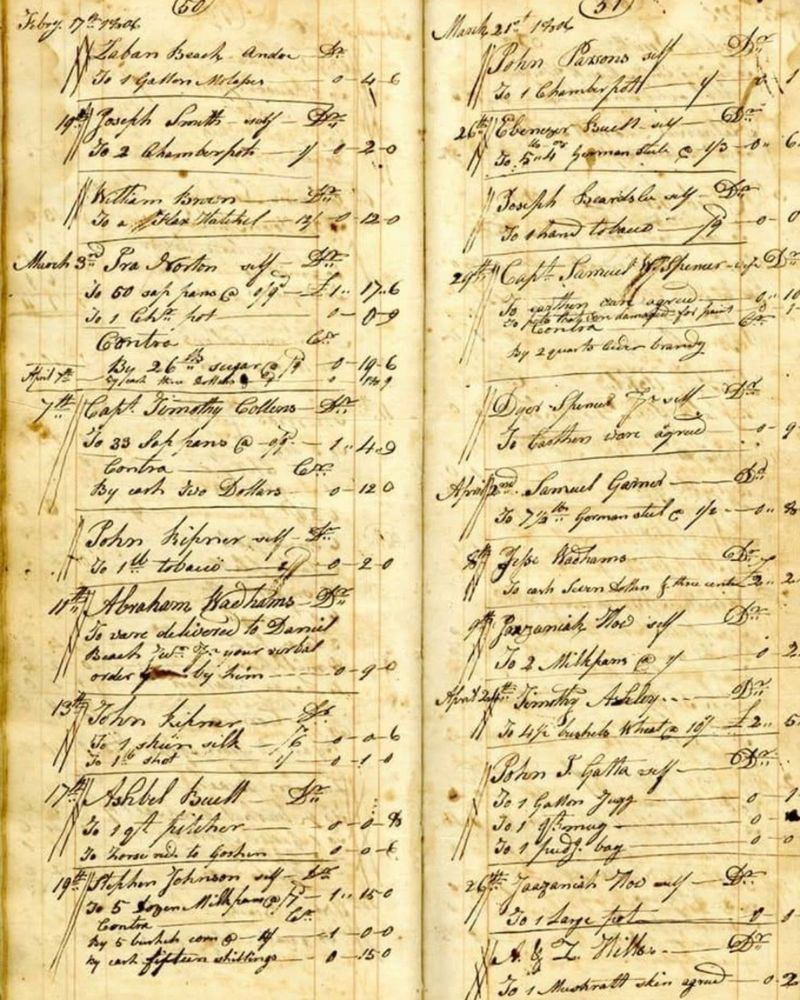 50
Febry. 17th 1806
Laban Beach Andoe Dr
To 1 Gallon Molases 0 4 6
19th Joseph Smith self Dr
To 2 Chamberpots 1/ 0 - 2 - 0
William Brown Dr
To a Flax Hatchel 12/ 0 - 12 - 0
March 3rd Ira Norton self Dr
To 50 sap pans @ 0/9 £1 " 17 " 6
To 1 pot 0 - 0 - 9
Contra Cr
By 26 lb sugar @ /9 0 - 19 - 6
April 7th By cash three Dollars
7th Capt. Timothy Collens Dr
To 33 Sap pans @ 0/9 1 " 4 " 9
Contra Cr
By cash Two Dollars 0 - 12 0
John Kipner self Dr
To 1 lb tobacco 2/ 0 - 2 - 0
11th Abraham Wadhams Dr
To ware delivered to Daniel
Beach your verbal
order by him 0 - 9 - 0
13th John Kipner Dr
To 1 skein silk /6 0 - 0 6
To 1 lb shot 1/ 0 - 1 0
17th Ashbel Buell Dr
To 1 qt pitcher 0 - 0 - 8
To horse ride to Goshen 0 0 - 6
19th Stephen Johnson self Dr
To 5 dozen Milkpans @ /7 1 " 15 0
Contra Cr
By 5 bushels corn @ 4/ 1 0 0
By cash fifteen shillings 0 15 0
51
March 21st 1806
John Parsons self Dr
To 1 Chamberpott 1/ 0 1
26th Ebenezer Buell self Dr
To 5 " 4 German steel @ 1/3 0 " 6
Joseph Beardslee self Dr
To 1 hand tobacco /9 0 0
29th Capt. Samuel W Spencer Dr
To earthen ware agreed 0 " 10
To pots that are damaged for paint
Contra Cr
By 2 quarts cider brandy
Dyer Spencer self Dr
To Earthen ware agreed 0 - 9
April 2nd Samuel Garner Dr
To 7 1/2 lb German steel @ 1/2 0 " 8
8th Jesse Wadhams Dr
To cash Seven dollars & three cents £2 " 2
9th Jaazaniah How self Dr
To 2 Milkpans @ 1/ 0 2
April 24th Timothy Ashley Dr
To 4 1/2 bushels Wheat @ 10/ £2 " 5
John J. Gatta self Dr
To 1 Gallon Jugg 0 1
To 1 qt mug 0
To 1 pudg. bag 0 0
26th Jaazaniah How self Dr
To 1 Large pot 0
A. & Z. Wilks Dr
To 1 Mushratt skin agreed 0 - 2